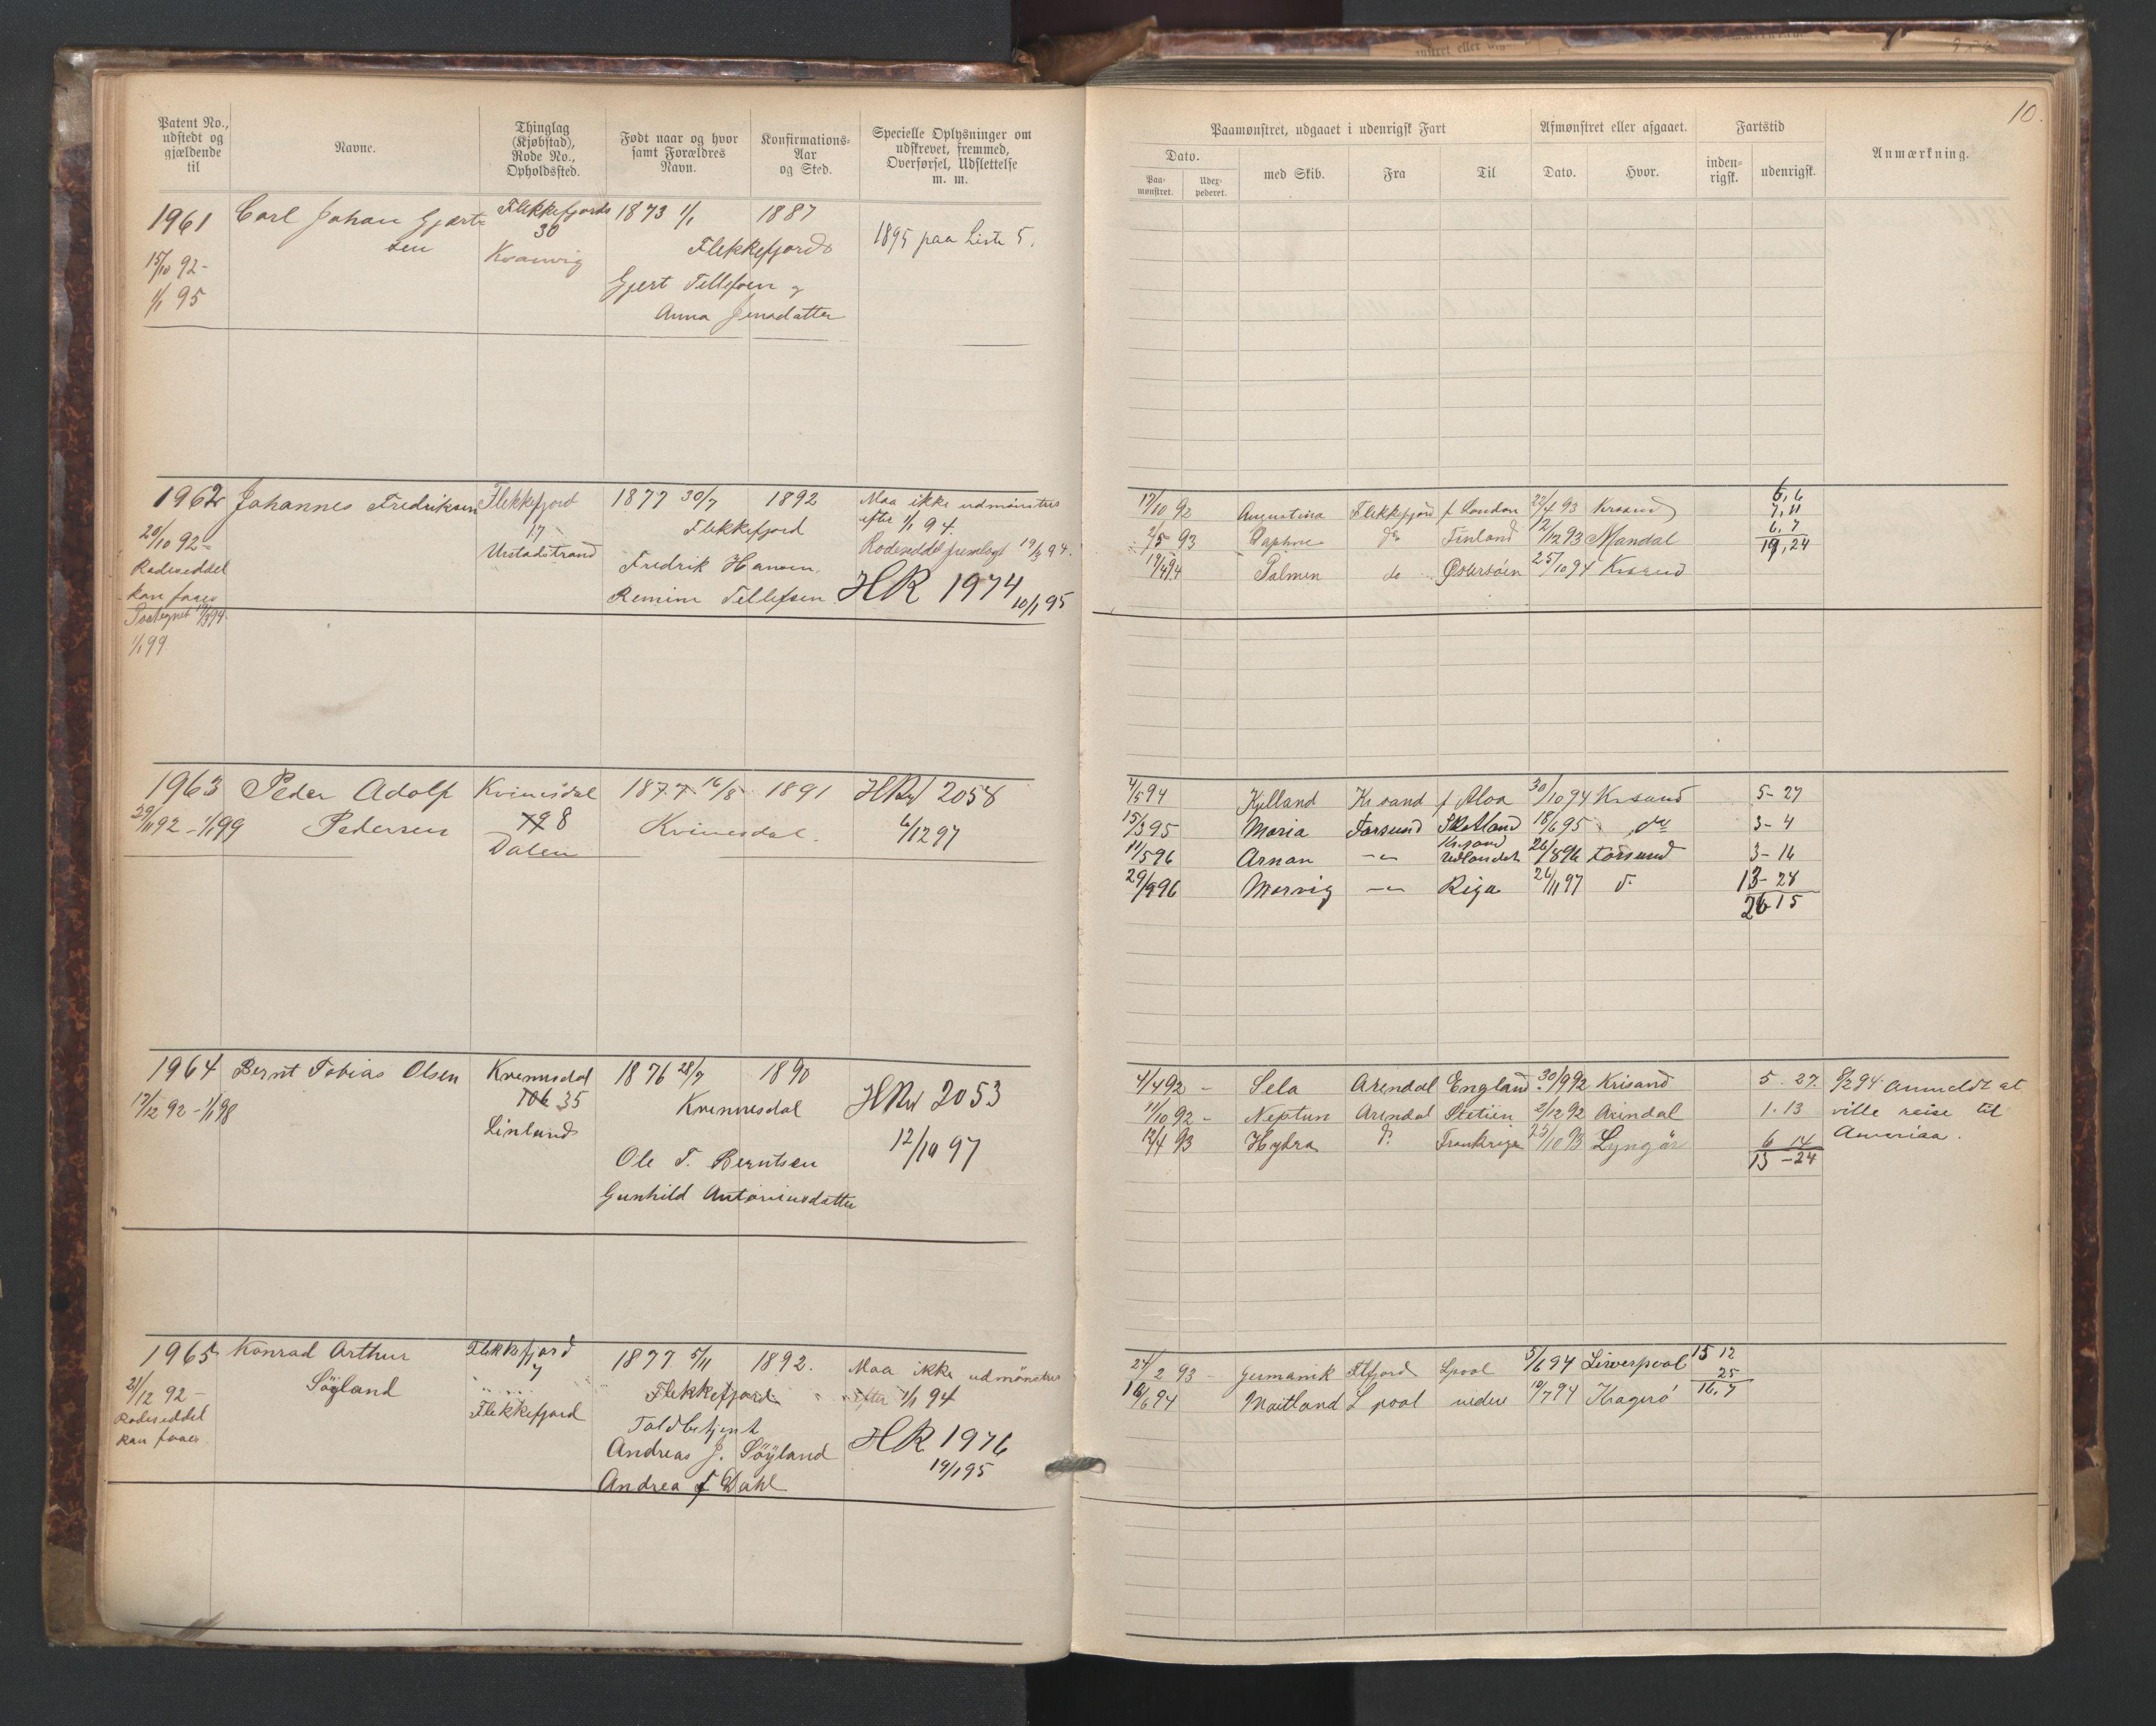 Patent No., udstedt og gjældende til
Navne.
Thinglag (Kjøbstad), Rode No., Opholdssted.
Født naar og hvor samt Forældres Navn.
Konfirmations-Aar og Sted.
Specielle Oplysninger om udskrevet, fremmed, Overførsel, Udslettelse m. m.
1961 Carl Johan Gjert- Flekkefjords 1873 1/1 1887
sen 30 Flekkefjords 1895 paa Liste 5.
15/10 92- Kvanvig
1/1 95 Gjert Tellefsen og
Anna Jensdatter
1962 Johannes Fredriksen Flekkefjord 1877 30/7 1892 Maa ikke udmønstres
17 Flekkefjord efter 1/1 94.
20/10 92- Urstadstrand Rodeseddel fremlagt 19/3 94.
Rodeseddel Fredrik Hansen
kan faaes Remine Tellefsen HR 1974
19/3 94 10/1 95
1/1 99
1963 Peder Adolf Kvinesdal 1877 16/8 1891 HRw 2058
29/11 92 - 1/1 99 Pedersen 8 Kvinesdal. 6/12 97
Dalen
1964 Bernt Tobias Olsen Kvinnesdal 1876 28/7 1890
17/12 92 - 1/1 98 106 35 Kvinnesdal HRw 2053
Linland 12/10 97
Ole T. Berntsen
Gunhild Antoniusdatter
1965 Konrad Arthur Flekkefjord 1877 5/11 1892. Maa ikke udmønstres
Söyland 7 Flekkefjord Efter 1/1 94
21/12 92 - Flekkefjord Toldbetjent
Rodeseddel Andreas J. Söyland HR 1976
kan faaes Andrea Dahl 19/1 95
10.
Paamønstret, udgaaet i udenrigsk Fart
Afmønstret eller afgaaet.
Fartstid
Anmærkning.
Dato.
Paa-mønstret.
Udex-pederet.
med Skib.
Fra
Til
Dato.
Hvor.
inden-rigsk.
udenrigsk.
17/10 92 Augustina Flekkefjord f London 22/4 93 Krsand 6,6
2/5 93 Daphne do Finland 12/12 93 Mandal 7,11
19/4 94 Palmen do Østersöen 25/10 94 Krsand 6,7
19,24
4/5 94 Kjelland Kr.sand f Aloa 30/10 94 Krsand 5-27
15/3 95 Maria Farsund Skotland 18/6 95 do 3-4
11/5 96 Arnan -"- Kr.sand Udlandet 26/8 96 Farsund 3-16
29/9 96 Morvig -"- Riga 26/11 97 do 13-28
26 15
4/4 92 - Sela Arendal England 30/9 92 Krisand 5.27. 8/2 94 Anmeldt at
11/10 92 - Neptun Arendal Stetien 2/12 92 Arendal 1.13 ville reise til
12/4 93 Hydra do Frankrige 25/10 93 Lyngör 6 14 Amerika.
13-24
24/2 93 - Germanik Flfjord Lpool 5/6 94 Liverpool 15 12
16/6 94 Maitland L pool 10/7 94 Kragerö 25
16,7